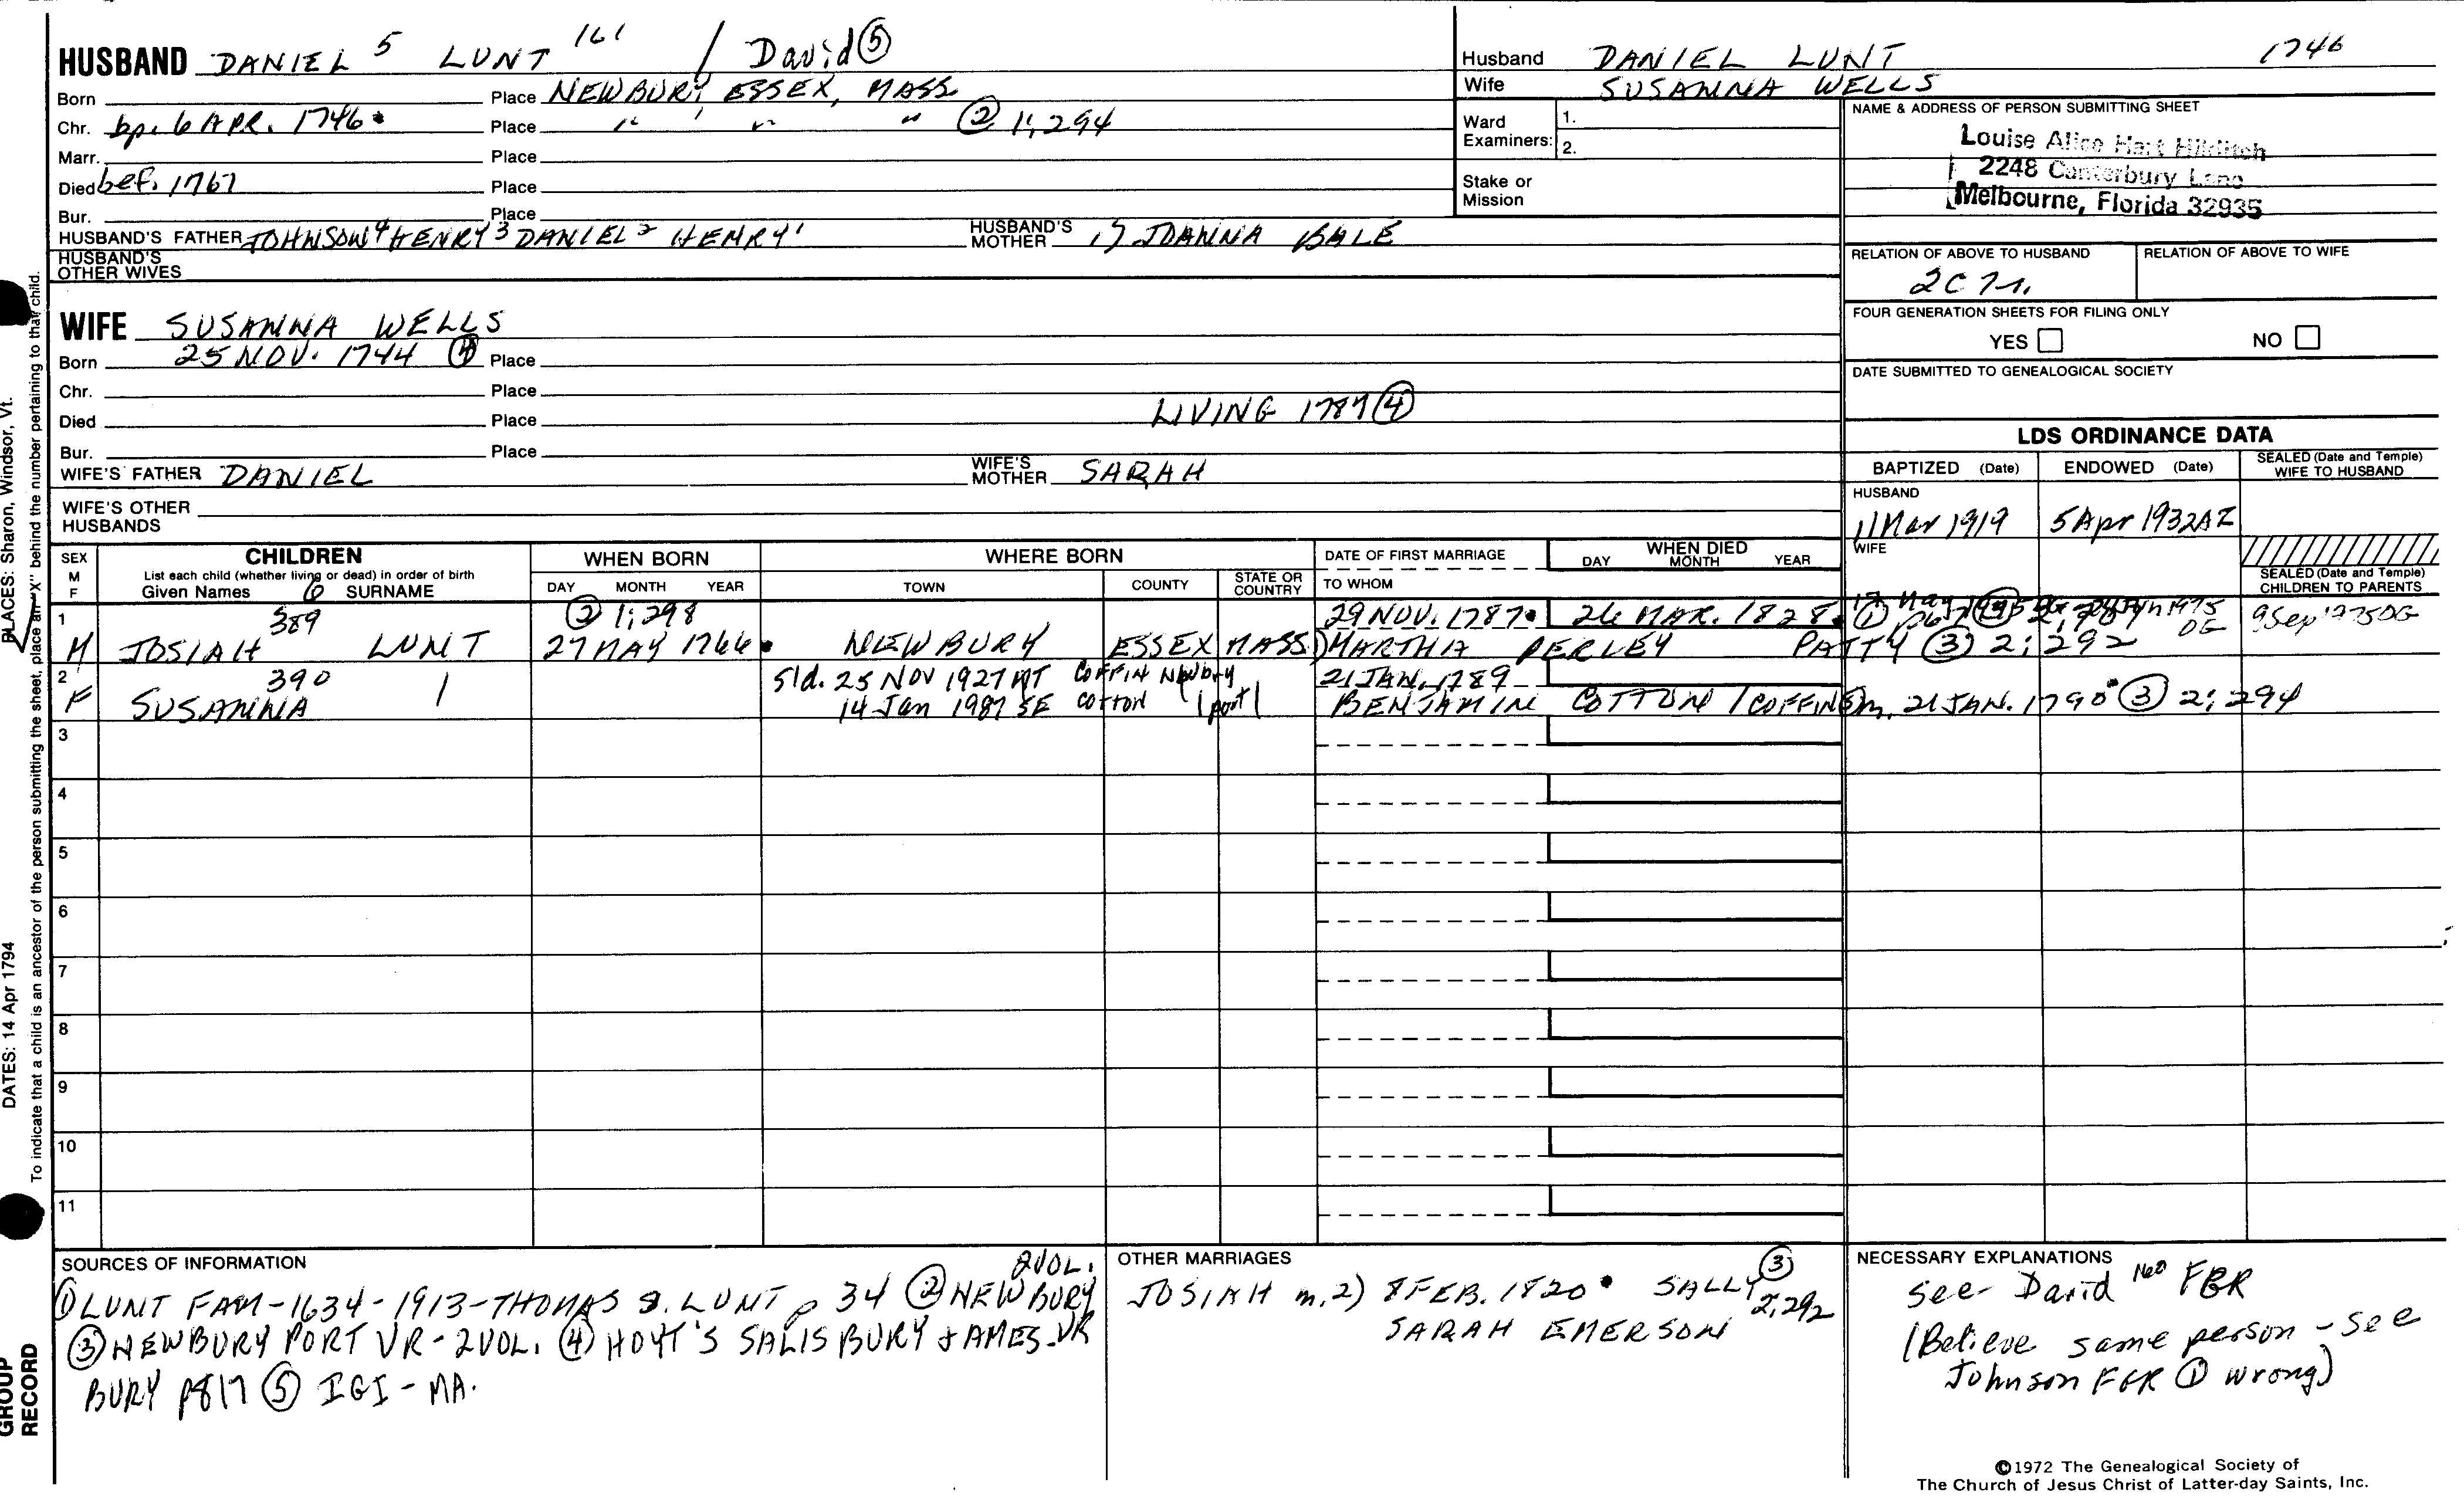 HUSBAND DANIEL 5 LUNT 161 / David ⑤
Born Place NEWBURY ESSEX, MASS
Chr. bp. 6 APR. 1746 Place " " " ② 1; 294
Marr. Place
Died bef. 1767 Place
Bur. Place
HUSBAND'S FATHER JOHNSON 4 HENRY 3 DANIEL 2 HENRY 1 HUSBAND'S MOTHER 1) JOANNA BALE
HUSBAND'S OTHER WIVES
Husband DANIEL LUNT 1746
Wife SUSANNA WELLS
Ward Examiners: 1.
2.
Stake or Mission
NAME & ADDRESS OF PERSON SUBMITTING SHEET
Louise Alice Hart Hilditch
2248 Canterbury Lane
Melbourne, Florida 32935
RELATION OF ABOVE TO HUSBAND RELATION OF ABOVE TO WIFE
2C 7r.
FOUR GENERATION SHEETS FOR FILING ONLY
YES NO
DATE SUBMITTED TO GENEALOGICAL SOCIETY
WIFE SUSANNA WELLS
Born 25 NOV. 1744 ④ Place
Chr. Place
LIVING 1787 ④
Died Place
Bur. Place
WIFE'S FATHER DANIEL WIFE'S MOTHER SARAH
WIFE'S OTHER HUSBANDS
LDS ORDINANCE DATA
BAPTIZED (Date) ENDOWED (Date) SEALED (Date and Temple) WIFE TO HUSBAND
HUSBAND
11 Mar 1919 5 Apr 1932 AZ
WIFE
SEALED (Date and Temple) CHILDREN TO PARENTS
SEX M F
CHILDREN
List each child (whether living or dead) in order of birth
Given Names ⑥ SURNAME
WHEN BORN
DAY MONTH YEAR
WHERE BORN
TOWN COUNTY STATE OR COUNTRY
DATE OF FIRST MARRIAGE
TO WHOM
WHEN DIED
DAY MONTH YEAR
1 389 ② 1; 298 29 NOV. 1787 26 MAR. 1828 ① 1975 9 Sep 1975 OG
M JOSIAH LUNT 27 MAY 1766 NEWBURY ESSEX MASS 1) MARTHA PERLEY PATTY ③ 2; 292
2 390 sld. 25 NOV 1927 COFFIN 21 JAN. 1789
F SUSANNA 14 Jan 1987 SE COTTON port BENJAMIN COTTON / COFFIN m. 21 JAN. 1790 ③ 2; 294
3
4
5
6
7
8
9
10
11
SOURCES OF INFORMATION
① LUNT FAM - 1634 - 1913 - THOMAS S. LUNT p 34 ② NEWBURY 2 VOL.
③ NEWBURY PORT VR - 2 VOL. ④ HOYT'S SALISBURY & AMES-
BURY p 817 ⑤ IGI - MA.
OTHER MARRIAGES
JOSIAH m. 2) 8 FEB. 1820 SALLY ③
SARAH EMERSON 2; 292
NECESSARY EXPLANATIONS
See David 160 FGR
(Believe same person - see
Johnson FGR ① wrong)
©1972 The Genealogical Society of
The Church of Jesus Christ of Latter-day Saints, Inc.
PLACES: Sharon, Windsor, Vt.
DATES: 14 Apr 1794
To indicate that a child is an ancestor of the person submitting the sheet, place an "X" behind the number pertaining to that child.
GROUP
RECORD